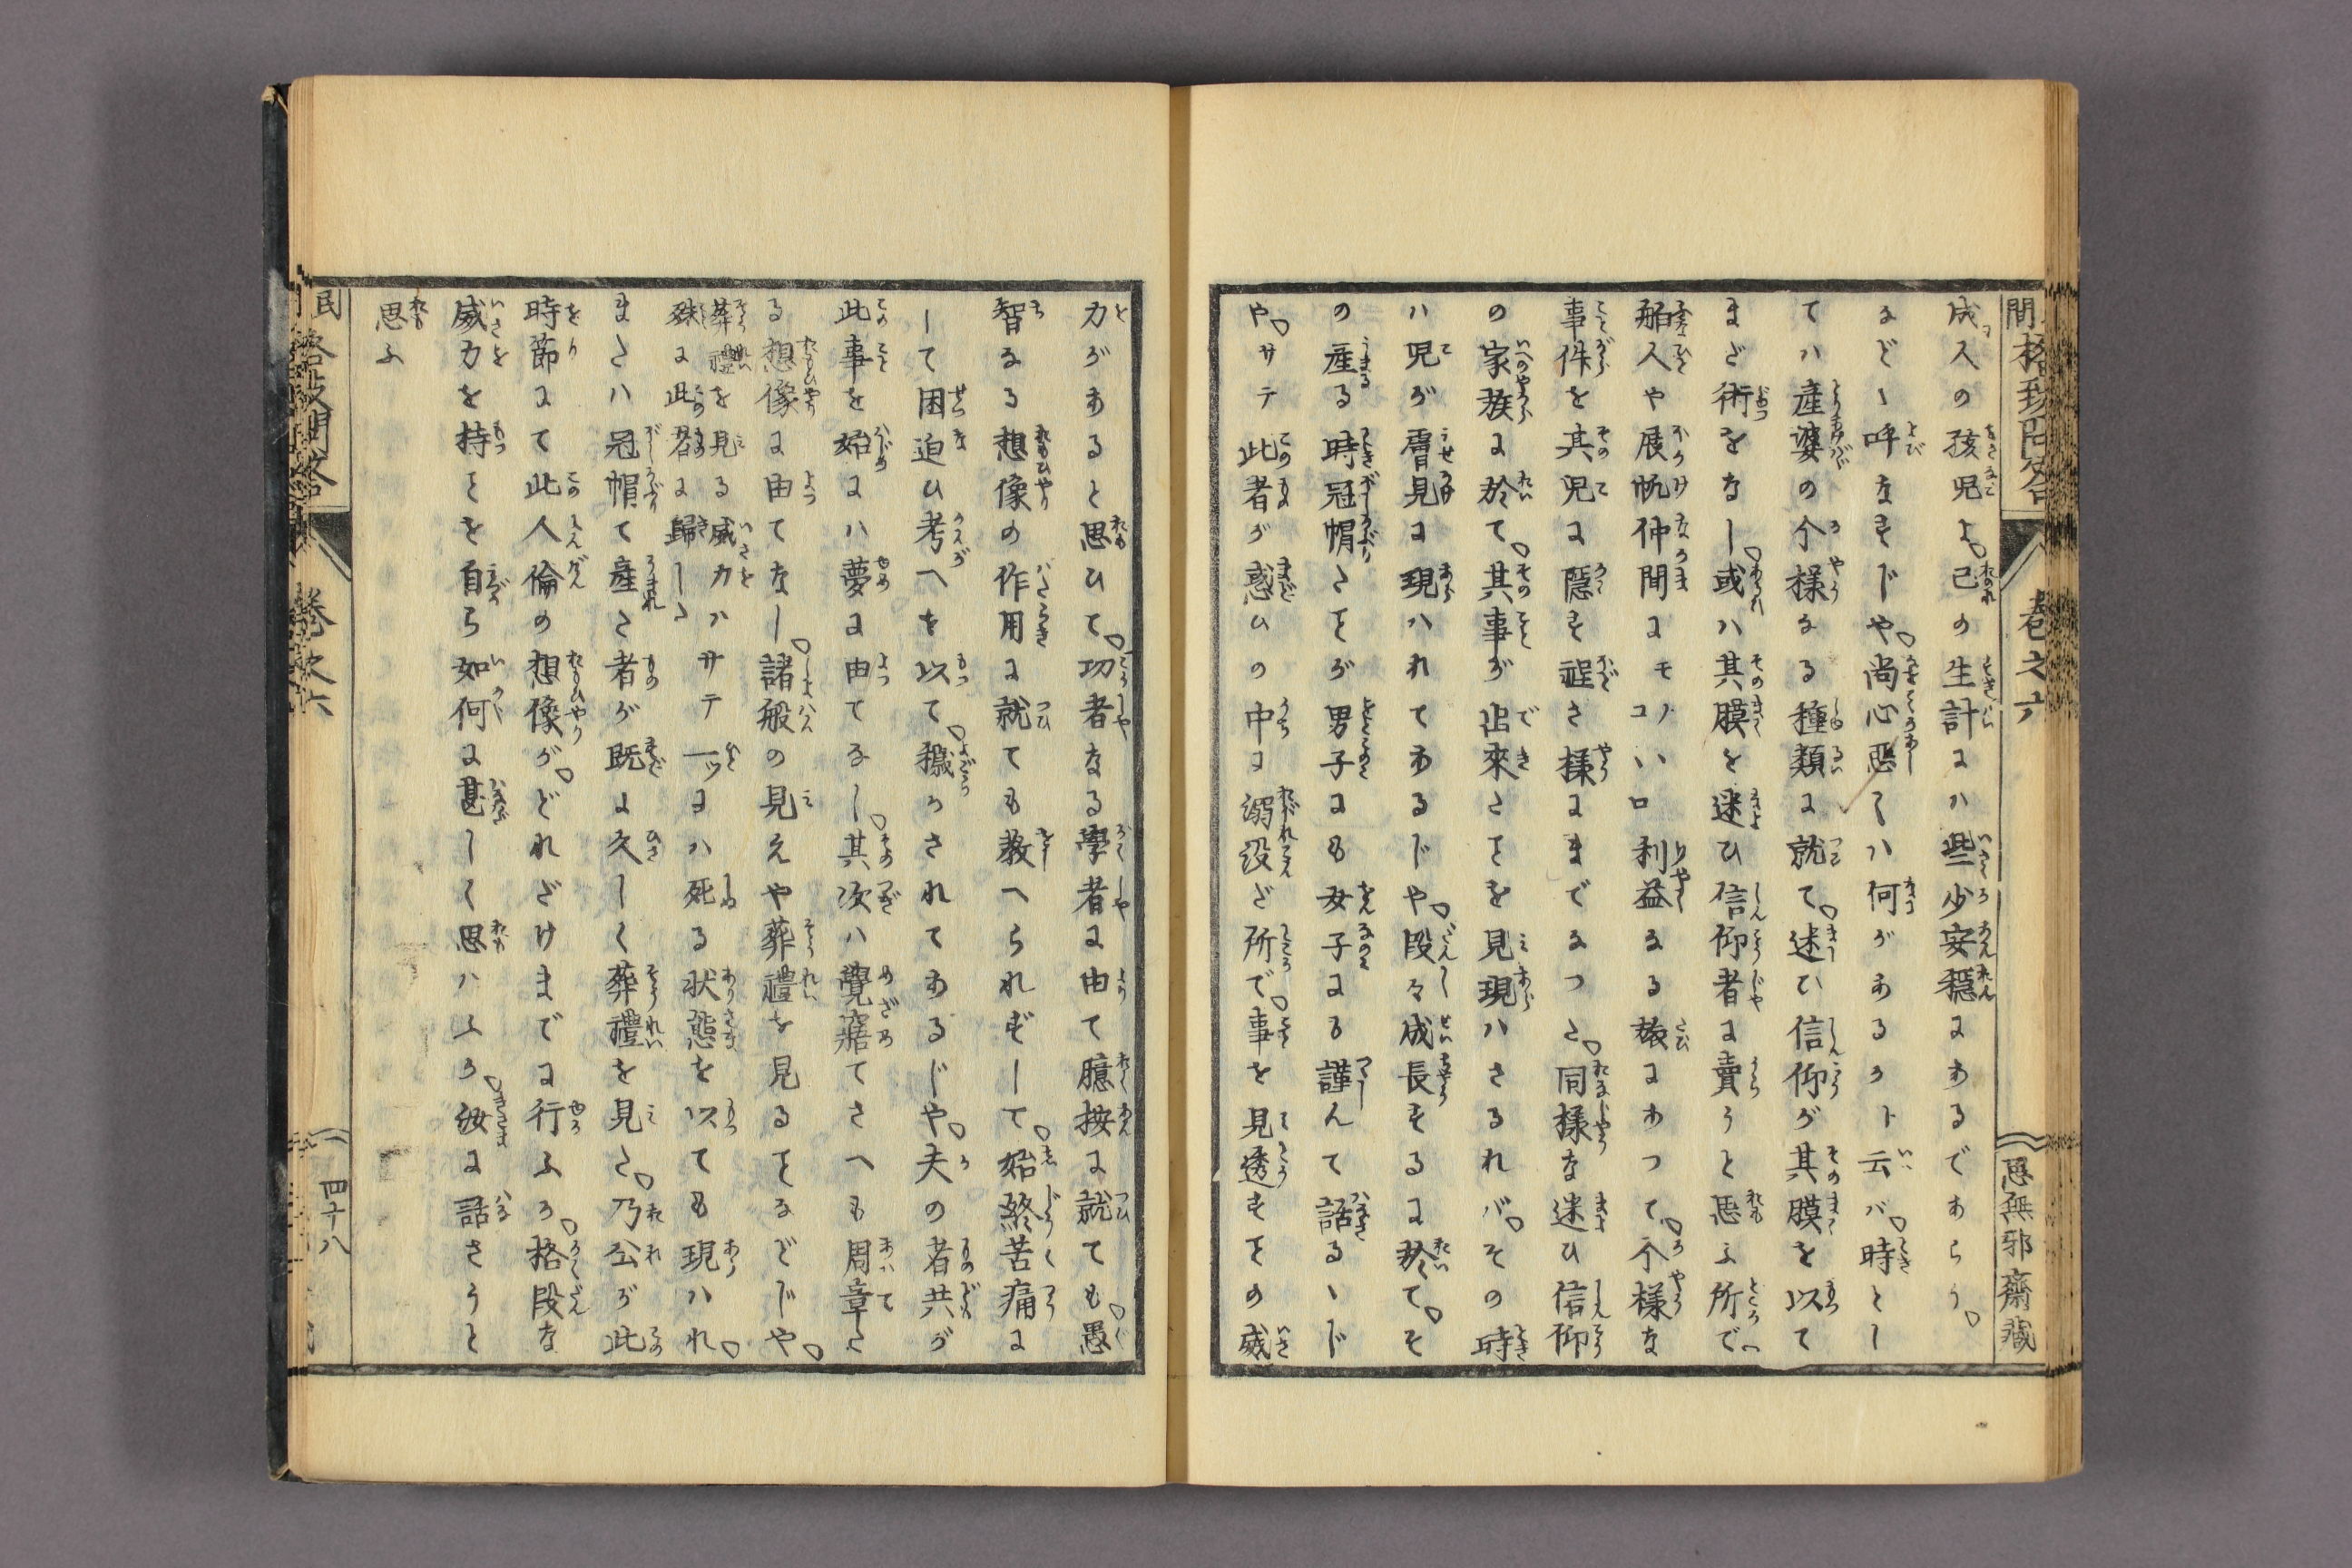 成人の孩児よ己の生計にハ些少安穏にあるであらう
などゝ呼なすじや尚心悪くハ何があるかト云バ時とし
てハ産婆の个様なる種類に就て迷ひ信仰が其膜を以て
まだ術をなし或ハ其膜を迷ひ信仰者に賣うと思ふ所で
船人や展帆仲間にモノコいロ利益なる救にあつて个様な
事件を其児に隠す程さ様にまでなつた同様な迷ひ信仰
の家族に於て其事が出來たとを見現ハさるれバその時
ハ児が膚見に現ハれてあるじや段々成長をるに於てそ
の産る時冠帽たとが男子にも女子にる謹んて話るゝド
やサテ此者が惑ひの中に溺没ざ所で事を見透すとの威
力があると思ひて功者なる學者に由て臆按に就ても愚
智なる想像の作用に就ても教へられずして始終苦痛に
して困迫ひ考へを以て穢かされてあるじや夫の者共が
此事を始にハ夢に由てなし其次ハ覺寤てさへも周章た
る想像に由てなし諸般の見えや葬禮を見るとなどじや
葬禮を見る威力ハサテ一ツにハ死る状態を以ても現ハれ
殊に此君に歸した
またハ冠帽て産た者が既に久しく葬禮を見た乃公が此
時節にて此人倫の想像がどれだけまでに行ふか格段な
威力を持とを自ら如何に甚しく思ハふか汝に話さうと
思ふ
巻之六
思無邪齋蔵
巻之六
四十八